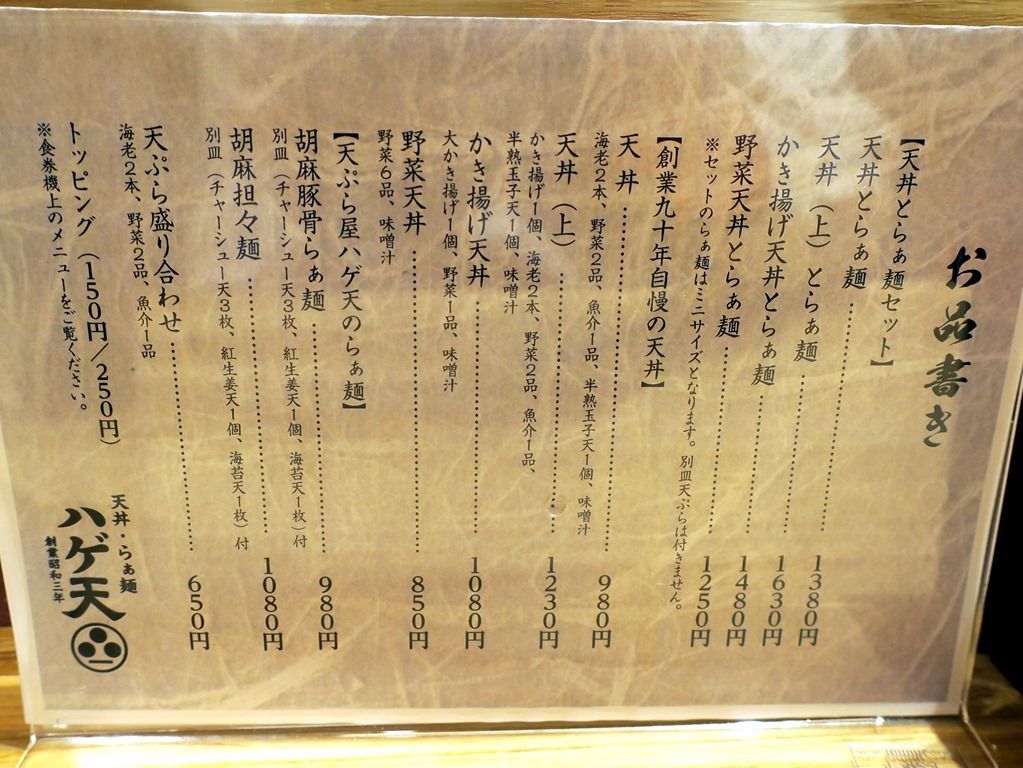 お品書き
【天丼とらぁ麺セット】
天丼とらぁ麺……1380円
天丼（上）とらぁ麺……1630円
かき揚げ天丼とらぁ麺……1480円
野菜天丼とらぁ麺……1250円
※セットのらぁ麺はミニサイズとなります。別皿天ぷらは付きません。
【創業九十年自慢の天丼】
天丼……980円
海老2本、野菜2品、魚介1品、半熟玉子天1個、味噌汁
天丼（上）……1230円
かき揚げ1個、海老2本、野菜2品、魚介1品、
半熟玉子天1個、味噌汁
かき揚げ天丼……1080円
大かき揚げ1個、野菜1品、味噌汁
野菜天丼……850円
野菜6品、味噌汁
【天ぷら屋ハゲ天のらぁ麺】
胡麻豚骨らぁ麺……980円
別皿（チャーシュー天3枚、紅生姜天1個、海苔天1枚）付
胡麻担々麺……1080円
別皿（チャーシュー天3枚、紅生姜天1個、海苔天1枚）付
天ぷら盛り合わせ……650円
海老2本、野菜2品、魚介1品
トッピング（150円/250円）
※食券機上のメニューをご覧ください。
天丼・らぁ麺
ハゲ天
創業昭和三年